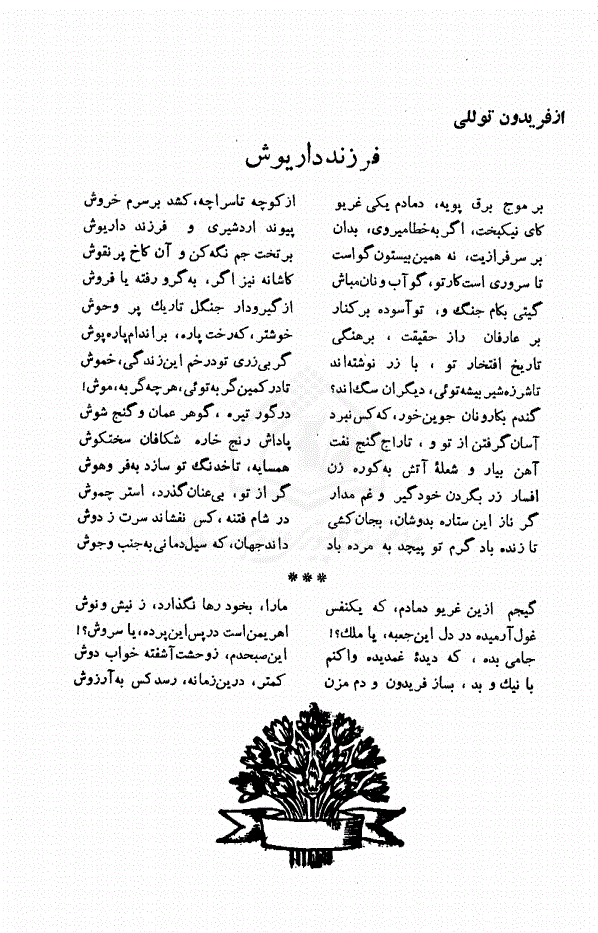 از فریدون توللی
فرزند داریوش
بر موج برق پویه، دمادم یکی غریو از کوچه تا سراچه، کشد بر سرم خروش
کای نیکبخت، اگر به خطا میروی، بدان پیوند اردشیری و فرزند داریوش
بر سرفرازیت، نه همین بیستون گواست بر تخت جم نگه کن و آن کاخ پر نقوش
تا سروری است کار تو، گو آب و نان مباش کاشانه نیز اگر، به گرو رفته یا فروش
گیتی بکام جنگ و، تو آسوده بر کنار از گیرودار جنگل تاریک پر وحوش
بر عارفان راز حقیقت، برهنگی خوشتر، که رخت پاره، بر اندام پاره پوش
تاریخ افتخار تو، با زر نوشته اند گر بی زری تو درخم این زندگی، خموش
تا شرزه شیر بیشه توئی، دیگران سگ اند؟ تا در کمین گربه توئی، هر چه گربه، موش!
گندم بکارونان جوین خور، که کس نبرد در گور تیره، گوهر عمان و گنج شوش
آسان گرفتن از تو و، تاراج گنج نفت پاداش رنج خاره شکافان سختکوش
آهن بیار و شعلهٔ آتش به کوره زن همسایه، تا خدنگ تو سازد به فر وهوش
افسار زر بگردن خود گیر و غم مدار گر از تو، بی عنان گذرد، استر چموش
گر ناز این ستاره بدوشان، بجان کشی در شام فتنه، کس نفشاند سرت ز دوش
تا زنده باد گرم تو پیچد به مرده باد داند جهان، که سیل دمانی به جنب و جوش
***
گیجم ازین غریو دمادم، که یکنفس ما را، بخود رها نگذارد، ز نیش و نوش
غول آرمیده در دل این جعبه، یا ملک؟! اهریمن است در پس این پرده، یا سروش؟!
جامی بده، که دیدهٔ غمدیده وا کنم این صبحدم، ز وحشت آشفته خواب دوش
با نیک و بد، بساز فریدون و دم مزن کمتر، درین زمانه، رسد کس به آرزوش